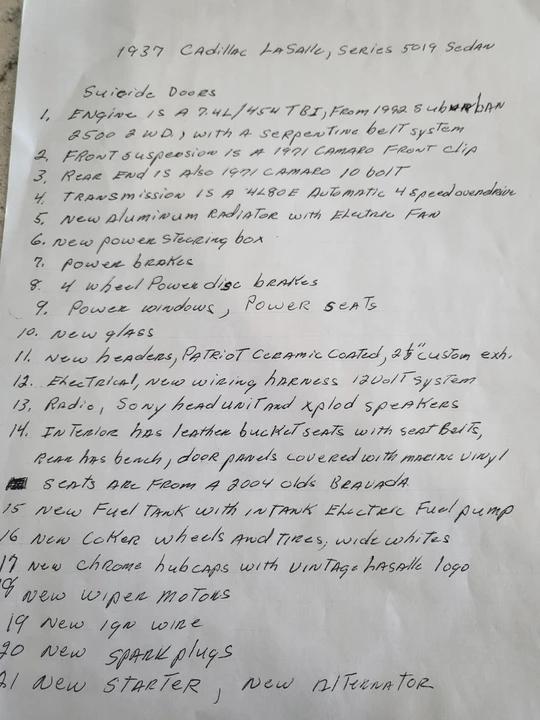 1937 Cadillac LaSalle, Series 5019 Sedan
Suicide Doors
1. Engine is a 7.4L/454 TBI, From 1992 Suburban
2500 2 WD., with a serpentine belt system
2. Front suspension is a 1971 Camaro Front clip
3. Rear End is Also 1971 Camaro 10 bolt
4. Transmission is a 4L80E Automatic 4 speed overdrive
5. New Aluminum Radiator with Electric Fan
6. New power steering box
7. Power brakes
8. 4 wheel Power disc brakes
9. Power windows, Power seats
10. New glass
11. New headers, Patriot Ceramic Coated, 2½" custom exh.
12. Electrical, new wiring harness 12 Volt system
13. Radio, Sony head unit and xplod speakers
14. Interior has leather bucket seats with seat belts,
Rear has bench, door panels covered with marine vinyl
seats are from a 2004 olds Bravada
15 New Fuel Tank with intank Electric Fuel pump
16 New Coker wheels and tires, wide whites
17 New chrome hubcaps with vintage LaSalle logo
18 New wiper motors
19 New ign wire
20 New spark plugs
21 New starter, New alternator